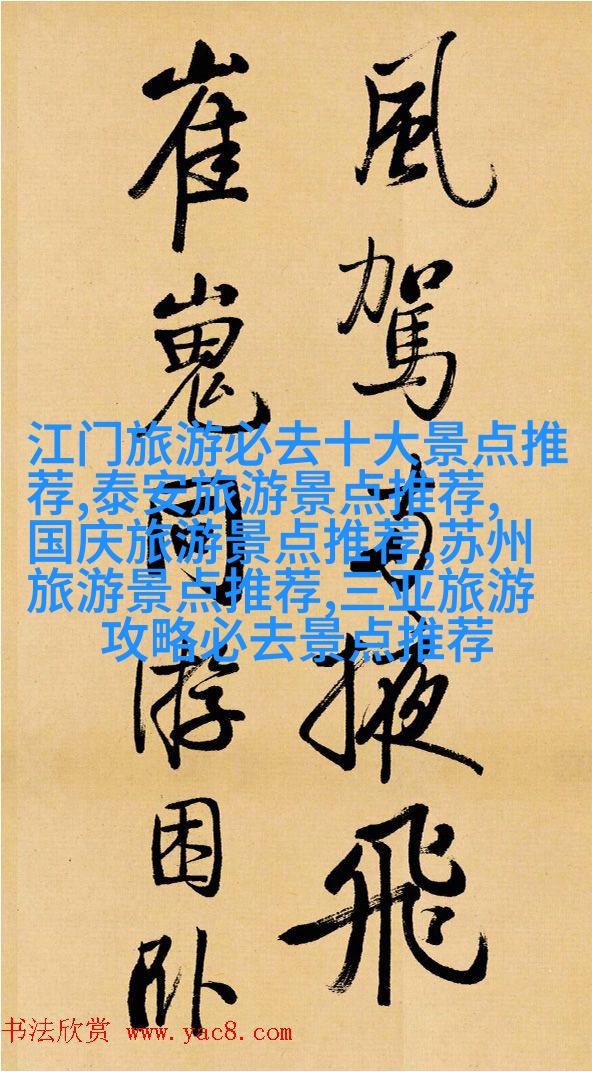 風駕掖飛
崔嵬同游困卧
江门旅游必去十大景点推
荐,泰安旅游景点推荐,
国庆旅游景点推荐,苏州
旅游景点推荐,三亚旅游
攻略必去景点推荐
书法欣赏 www.yac8.com